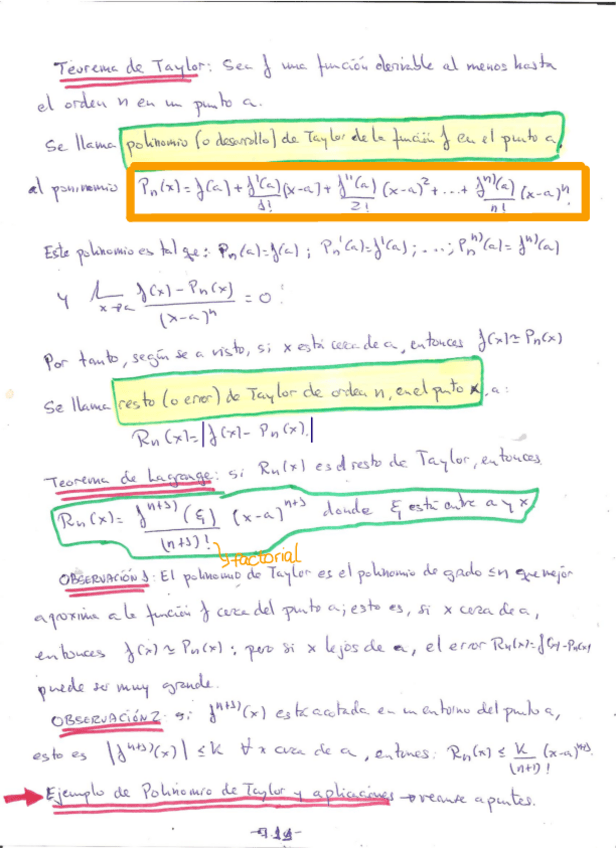 Teorema de Taylor: Sea f una función derivable al menos hasta
el orden n en un punto a.
Se llama polinomio (o desarrollo) de Taylor de la función f en el punto a,
al polinomio Pn(x) = f(a) + f'(a)/1! (x-a) + f''(a)/2! (x-a)² + ... + fⁿ⁾(a)/n! (x-a)ⁿ.
Este polinomio es tal que: Pn(a)=f(a); Pn'(a)=f'(a); ...; Pnⁿ⁾(a)=fⁿ⁾(a)
y lim x→a f(x)-Pn(x)/(x-a)ⁿ = 0.
Por tanto, según se a visto, si x está cerca de a, entonces f(x) ≃ Pn(x)
Se llama resto (o error) de Taylor de orden n, en el punto x, a:
Rn(x) = |f(x) - Pn(x)|
Teorema de Lagrange: si Rn(x) es el resto de Taylor, entonces
Rn(x) = fⁿ⁺¹⁾(ξ)/(n+1)! (x-a)ⁿ⁺¹ donde ξ está entre a y x
factorial
OBSERVACIÓN 1: El polinomio de Taylor es el polinomio de grado ≤n que mejor
aproxima a la función f cerca del punto a; esto es, si x cerca de a,
entonces f(x) ≃ Pn(x); pero si x lejos de a, el error Rn(x)=f(x)-Pn(x)
puede ser muy grande.
OBSERVACIÓN 2: si fⁿ⁺¹⁾(x) está acotada en un entorno del punto a,
esto es |fⁿ⁺¹⁾(x)| ≤ K ∀x cerca de a, entonces: Rn(x) ≤ K/(n+1)! (x-a)ⁿ⁺¹.
Ejemplo de Polinomio de Taylor y aplicaciones → verse apuntes.